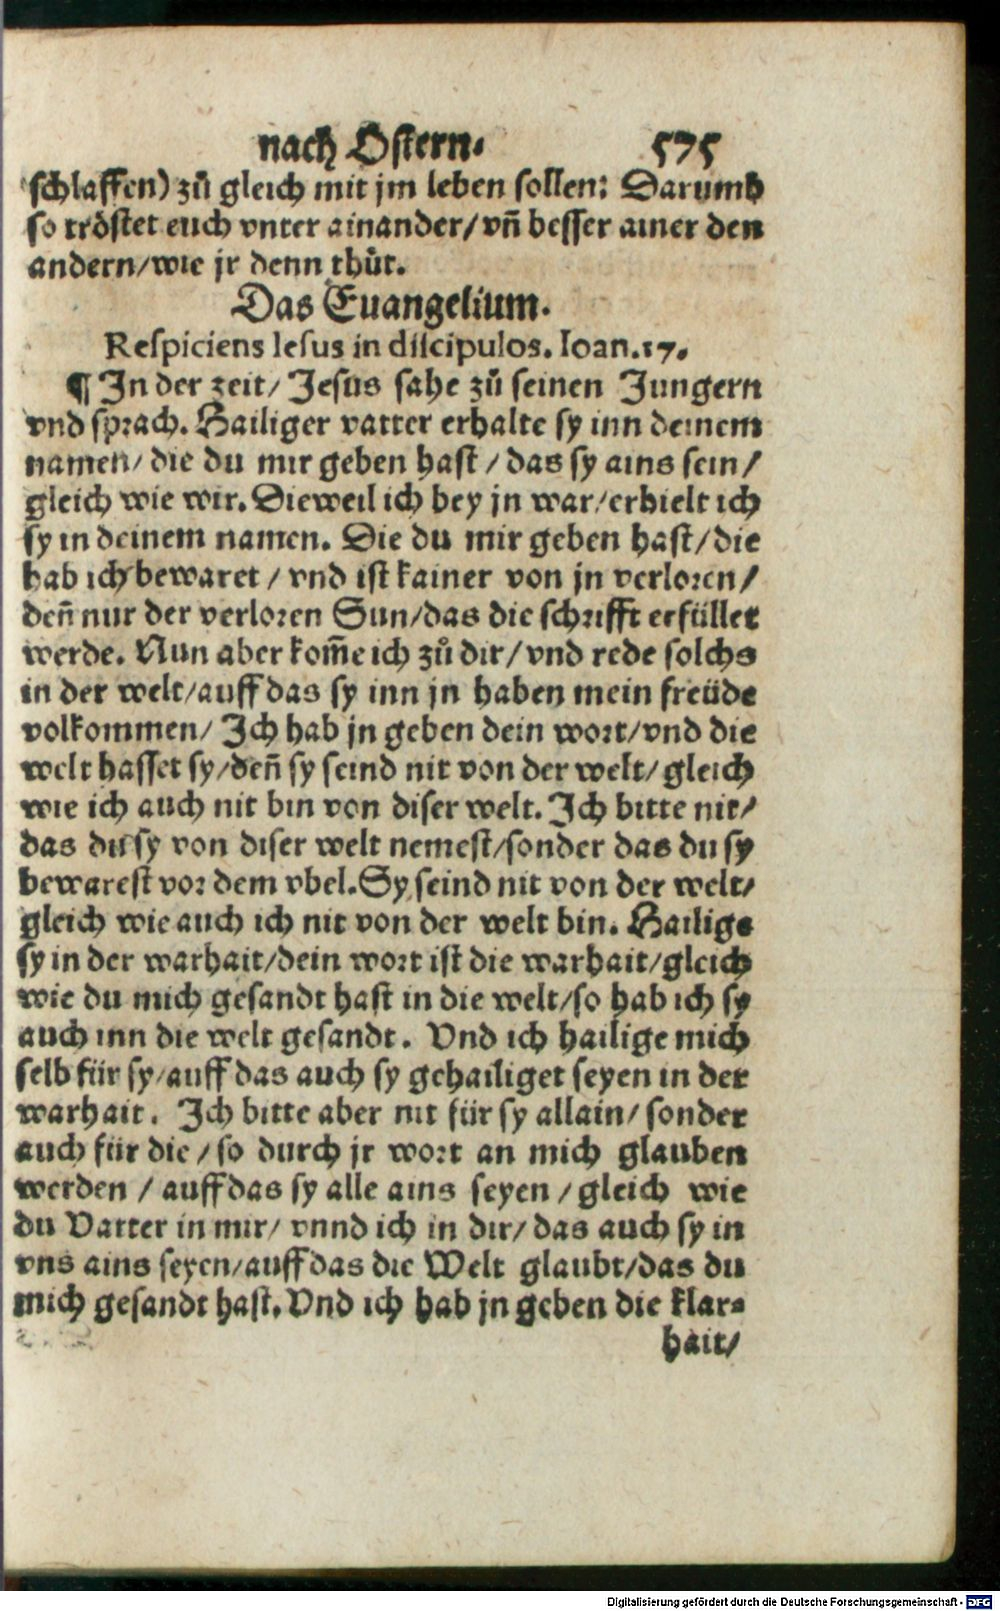 nach Ostern. 575
schlaffen) zů gleich mit jm leben sollen: Darumb
so tröstet euch vnter ainander/ vn̄ besser ainer den
andern/ wie jr denn thůt.
Das Euangelium.
Respiciens Iesus in discipulos. Ioan. 17.
¶ In der zeit/ Jesus sahe zů seinen Jungern
vnd sprach. Hailiger vatter erhalte sy inn deinem
namen/ die du mir geben hast/ das sy ains sein/
gleich wie wir. Dieweil ich bey jn war/ erhielt ich
sy in deinem namen. Die du mir geben hast/ die
hab ich bewaret/ vnd ist kainer von jn verloren/
den̄ nur der verloren Sun/ das die schrifft erfüllet
werde. Nun aber kom̄e ich zů dir/ vnd rede solchs
in der welt/ auff das sy inn jn haben mein freüde
volkommen/ Ich hab jn geben dein wort/ vnd die
welt hasset sy/ den̄ sy seind nit von der welt/ gleich
wie ich auch nit bin von diser welt. Ich bitte nit/
das du sy von diser welt nemest/ sonder das du sy
bewarest vor dem vbel. Sy seind nit von der welt/
gleich wie auch ich nit von der welt bin. Hailige
sy in der warhait/ dein wort ist die warhait/ gleich
wie du mich gesandt hast in die welt/ so hab ich sy
auch inn die welt gesandt. Vnd ich hailige mich
selb für sy/ auff das auch sy gehailiget seyen in der
warhait. Ich bitte aber nit für sy allain/ sonder
auch für die/ so durch jr wort an mich glauben
werden/ auff das sy alle ains seyen/ gleich wie
du Vatter in mir/ vnnd ich in dir/ das auch sy in
vns ains seyen/ auff das die Welt glaubt/ das du
mich gesandt hast. Vnd ich hab jn geben die klar-
hait/
Digitalisierung gefördert durch die Deutsche Forschungsgemeinschaft - DFG